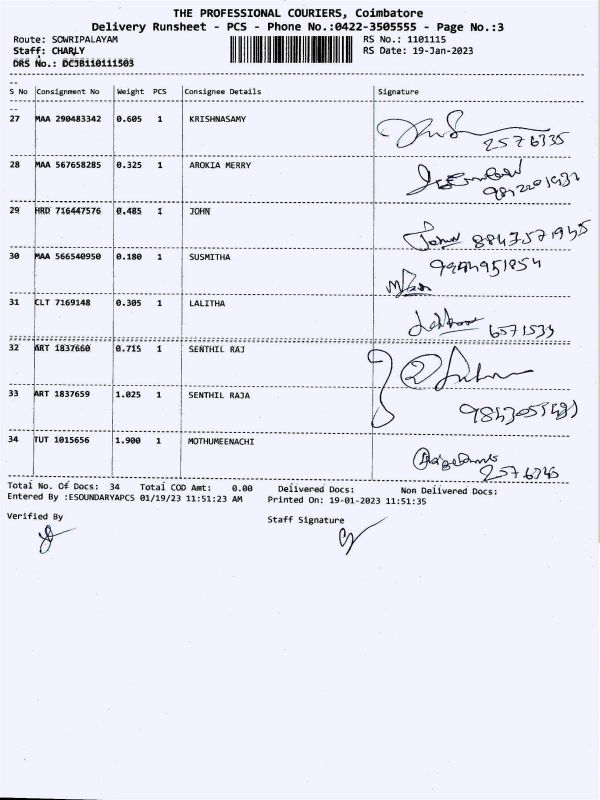 THE PROFESSIONAL COURIERS, Coimbatore
Delivery Runsheet - PCS - Phone No.:0422-3505555 - Page No.:3
Route: SOWRIPALAYAM RS No.: 1101115
Staff: CHARLY RS Date: 19-Jan-2023
DRS No.: DCJB110111503
S No Consignment No Weight PCS Consignee Details Signature
27 MAA 290483342 0.605 1 KRISHNASAMY
2576335
28 MAA 567658285 0.325 1 AROKIA MERRY
29 HRD 716447576 0.485 1 JOHN
John
30 MAA 566540950 0.180 1 SUSMITHA
9944951854
31 CLT 7169148 0.305 1 LALITHA
32 ART 1837660 0.715 1 SENTHIL RAJ
33 ART 1837659 1.025 1 SENTHIL RAJA
34 TUT 1015656 1.900 1 MOTHUMEENACHI
2576345
Total No. Of Docs: 34 Total COD Amt: 0.00 Delivered Docs: Non Delivered Docs:
Entered By :ESOUNDARYAPCS 01/19/23 11:51:23 AM Printed On: 19-01-2023 11:51:35
Verified By Staff Signature